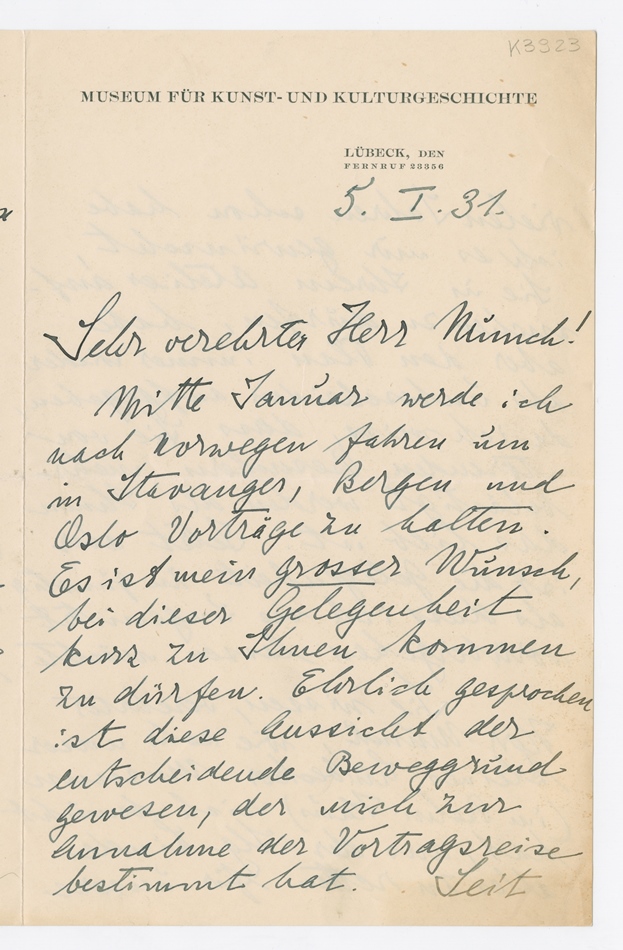 K3923
MUSEUM FÜR KUNST- UND KULTURGESCHICHTE
LÜBECK, DEN
FERNRUF 23356
5. I. 31.
Sehr verehrter Herr Munch!
Mitte Januar werde ich
nach Norwegen fahren um
in Stavanger, Bergen und
Oslo Vorträge zu halten.
Es ist mein grosser Wunsch,
bei dieser Gelegenheit
kurz zu Ihnen kommen
zu dürfen. Ehrlich gesprochen
ist diese Aussicht der
entscheidende Beweggrund
gewesen, der mich zur
Annahme der Vortragsreise
bestimmt hat. Seit